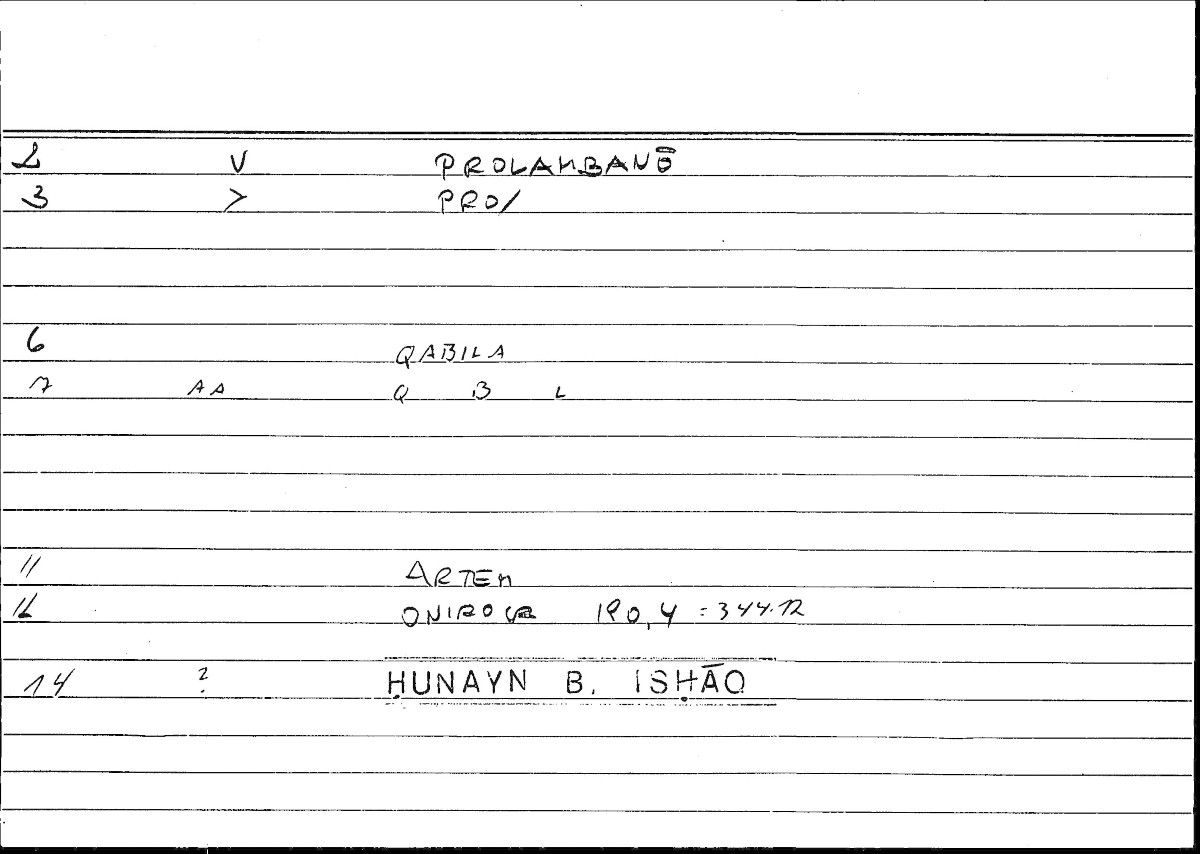 2 V PROLAMBANŌ
3 > PRO/
6 QABILA
7 AA Q B L
11 ARTEM
12 ONIROCR 190,4 = 344.12
14 ? ḤUNAYN B. ISḤĀQ